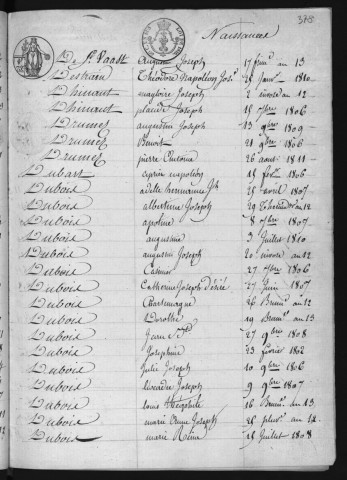 378
Naissances
De St Vaast Auguste Joseph 17 frim.re an 13
Destrain Théodore Napoléon Jos. 28 Janv. 1810
Dhinaut Magloire Joseph 2 nivose an 12
Dhinaut placide Joseph 15 7bre 1806
Drumez augustin Joseph 23 9bre 1809
Drumez Benoit 21 9bre 1806
Drumez pierre Antoine 26 aout 1811
Dubart napoléon 15 1806
Dubois adelle hermanie Jh 25 avril 1807
Dubois albertine Joseph 29 Thermidor an 12
Dubois apoline 8 7bre 1807
Dubois augustine 3 Juillet 1810
Dubois augustin Joseph 20 nivose an 12
Dubois Casimir 27 7bre 1806
Dubois Catherine Joseph Désiré 27 Juin 1807
Dubois Charlemagne 26 Brum.re an 12
Dubois Dorothé 19 Brum.re an 13
Dubois Jean Bte 27 9bre 1808
Dubois Josephine 23 février 1812
Dubois Julie Joseph 10 9bre 1806
Dubois Joseph 9 9bre 1807
Dubois Louis théophile 16 Brum.re an 13
Dubois marie Anne Joseph 25 pluv. an 12
Dubois marie Reine 28 Juillet 1808